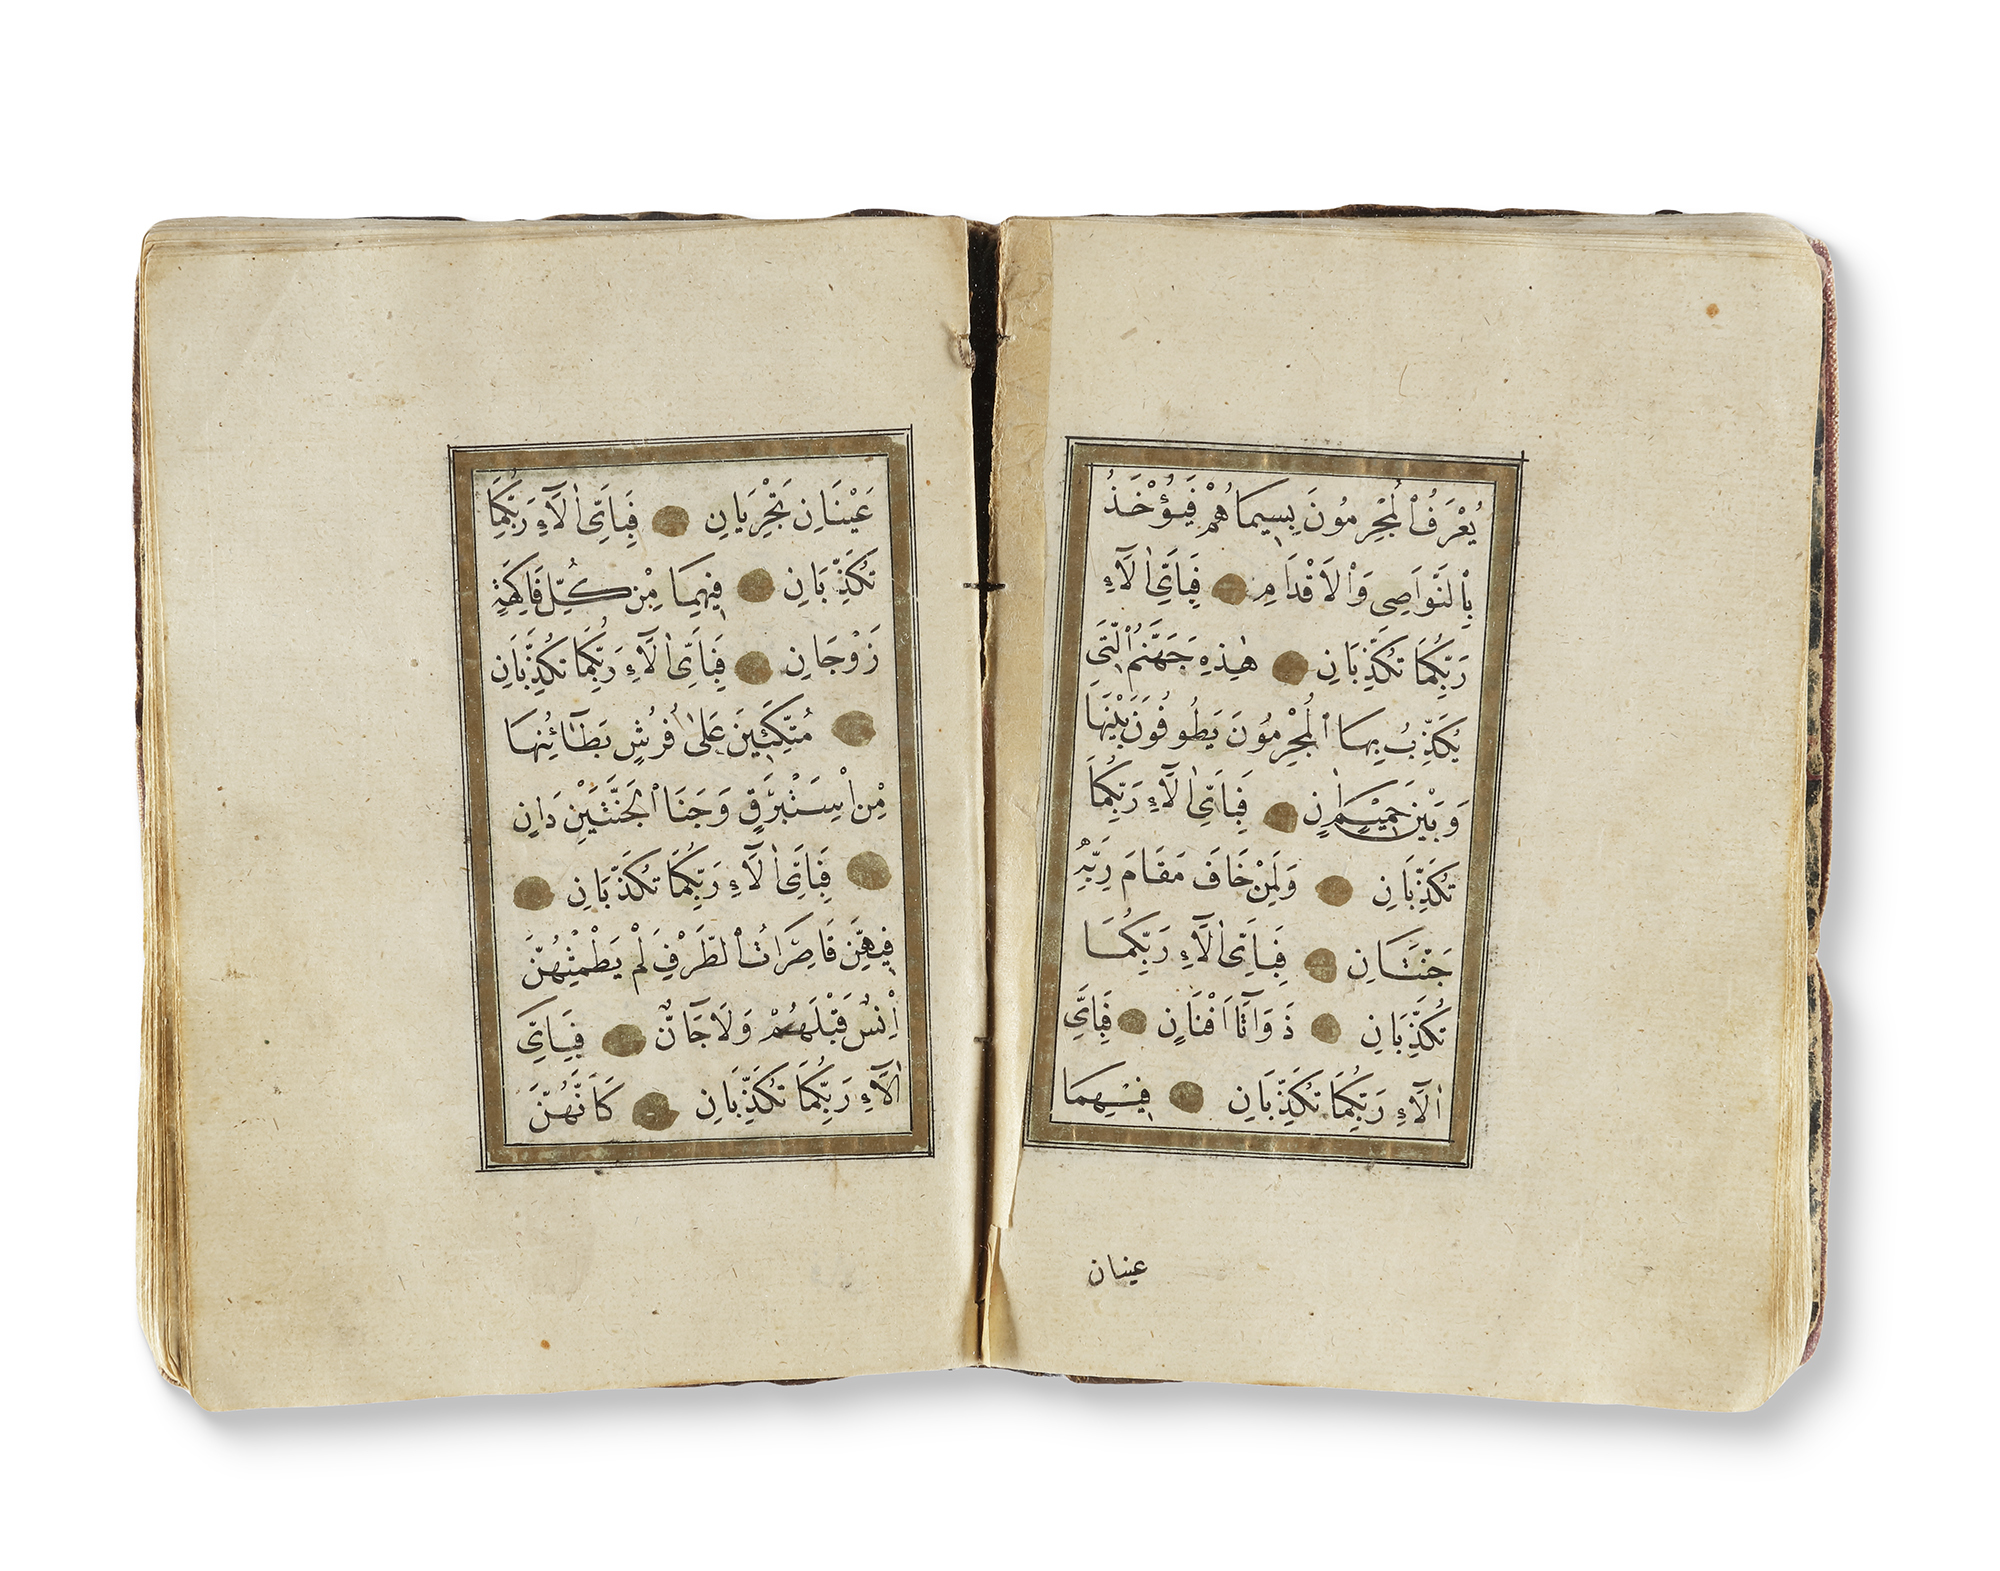 يُعْرَفُ ٱلْمُجْرِمُونَ بِسِيمَاهُمْ فَيُؤْخَذُ
بِٱلنَّوَاصِى وَٱلْاَقْدَامِ فَبِاَىِّ اٰلَآءِ
رَبِّكُمَا تُكَذِّبَانِ هٰذِهِ جَهَنَّمُ ٱلَّتِى
يُكَذِّبُ بِهَا ٱلْمُجْرِمُونَ يَطُوفُونَ بَيْنَهَا
وَبَيْنَ حَمِيْمٍ اٰنٍ فَبِاَىِّ اٰلَآءِ رَبِّكُمَا
تُكَذِّبَانِ وَلِمَنْ خَافَ مَقَامَ رَبِّهِ
جَنَّتَانِ فَبِاَىِّ اٰلَآءِ رَبِّكُمَا
تُكَذِّبَانِ ذَوَاتَآ اَفْنَانٍ فَبِاَىِّ
اٰلَآءِ رَبِّكُمَا تُكَذِّبَانِ فِيْهِمَا
عينان
عَيْنَانِ تَجْرِيَانِ فَبِاَىِّ اٰلَآءِ رَبِّكُمَا
تُكَذِّبَانِ فِيهِمَا مِنْ كُلِّ فَاكِهَةٍ
زَوْجَانِ فَبِاَىِّ اٰلَآءِ رَبِّكُمَا تُكَذِّبَانِ
مُتَّكِئِينَ عَلٰى فُرُشٍ بَطَآئِنُهَا
مِنْ اِسْتَبْرَقٍ وَجَنَا ٱلْجَنَّتَيْنِ دَانٍ
فَبِاَىِّ اٰلَآءِ رَبِّكُمَا تُكَذِّبَانِ
فِيهِنَّ قَاصِرَاتُ ٱلطَّرْفِ لَمْ يَطْمِثْهُنَّ
اِنْسٌ قَبْلَهُمْ وَلَا جَآنٌّ فَبِاَىِّ
اٰلَآءِ رَبِّكُمَا تُكَذِّبَانِ كَاَنَّهُنَّ